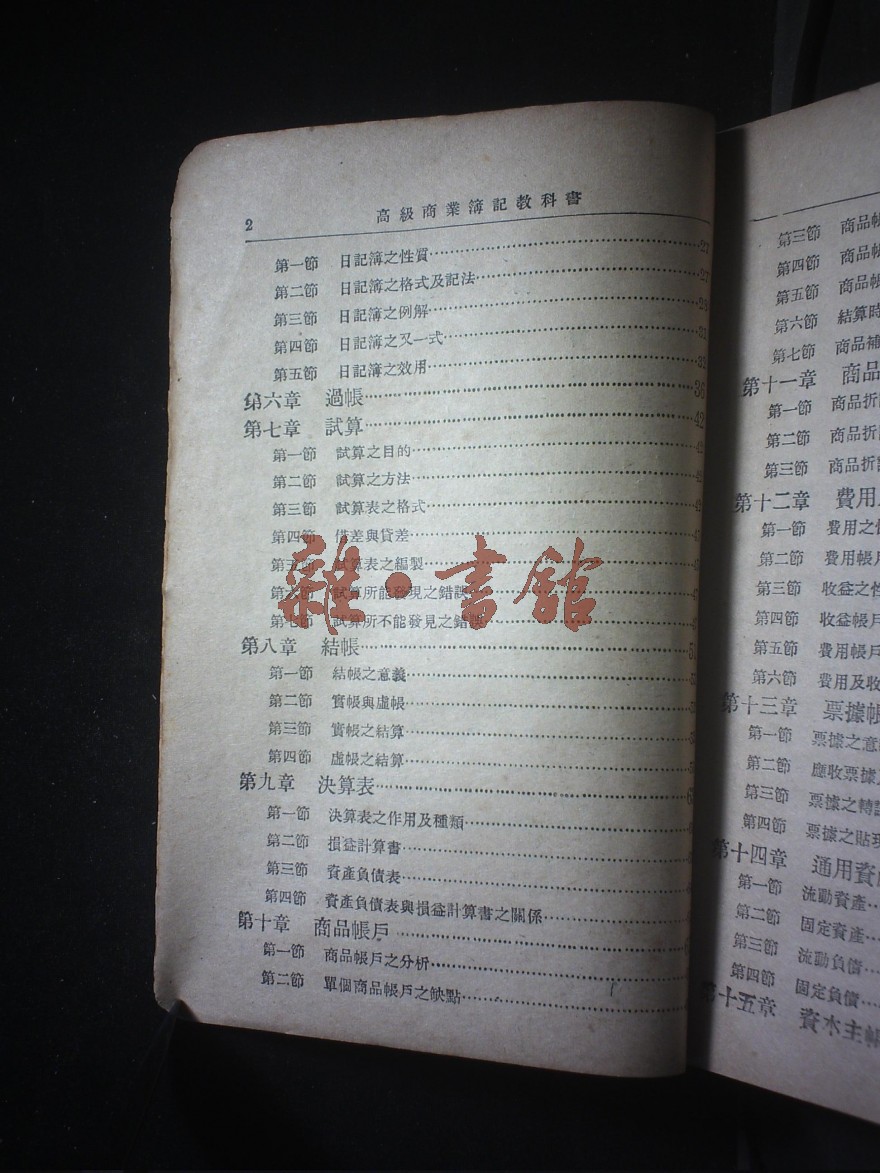 2
高級商業簿記教科書
第一節 日記簿之性質……27
第二節 日記簿之格式及記法……27
第三節 日記簿之例解……29
第四節 日記簿之又一式……
第五節 日記簿之效用……
第六章 過帳……36
第七章 試算……42
第一節 試算之目的……
第二節 試算之方法……
第三節 試算表之格式……
第四節 借差與貸差……
第五節 試算表之編製……
第六節 試算所能發現之錯誤……
第七節 試算所不能發見之錯誤……
第八章 結帳……
第一節 結帳之意義……
第二節 實帳與虛帳……
第三節 實帳之結算……
第四節 虛帳之結算……
第九章 決算表……
第一節 決算表之作用及種類……
第二節 損益計算書……
第三節 資產負債表……
第四節 資產負債表與損益計算書之關係……
第十章 商品帳戶……
第一節 商品帳戶之分析……
第二節 單個商品帳戶之缺點……
雜·書館
第三節 商品帳
第四節 商品帳
第五節 商品帳
第六節 結算時
第七節 商品補
第十一章 商品
第一節 商品折
第二節 商品折
第三節 商品折
第十二章 費用
第一節 費用之性
第二節 費用帳戶
第三節 收益之性
第四節 收益帳戶
第五節 費用帳戶
第六節 費用及收
第十三章 票據帳
第一節 票據之意
第二節 應收票據
第三節 票據之轉
第四節 票據之貼現
第十四章 通用資
第一節 流動資產……
第二節 固定資產……
第三節 流動負債……
第四節 固定負債……
第十五章 資本主帳